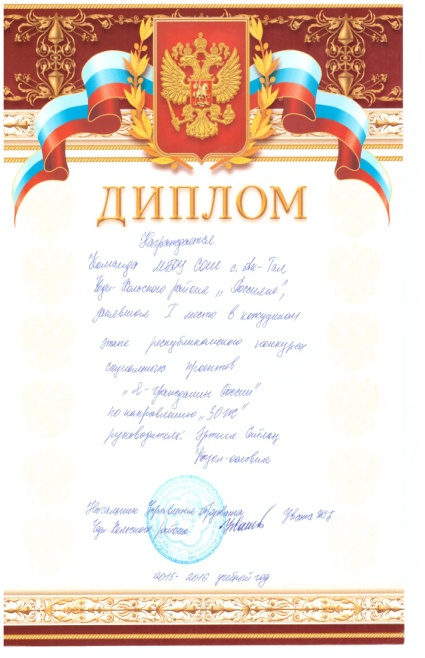 ДИПЛОМ
Награждается
Команда МБОУ СОШ с. Ак-Тал
Чеди-Хольского района „Россияне",
занявшая I место в кожуунном
этапе республиканского конкурса
социальных проектов
„Я - Гражданин России"
по направлению „ЗОЖ"
руководитель: Ертине Сайлаң
Начальник Управления образования
Чеди-Хольского района
2015-2016 учебный год